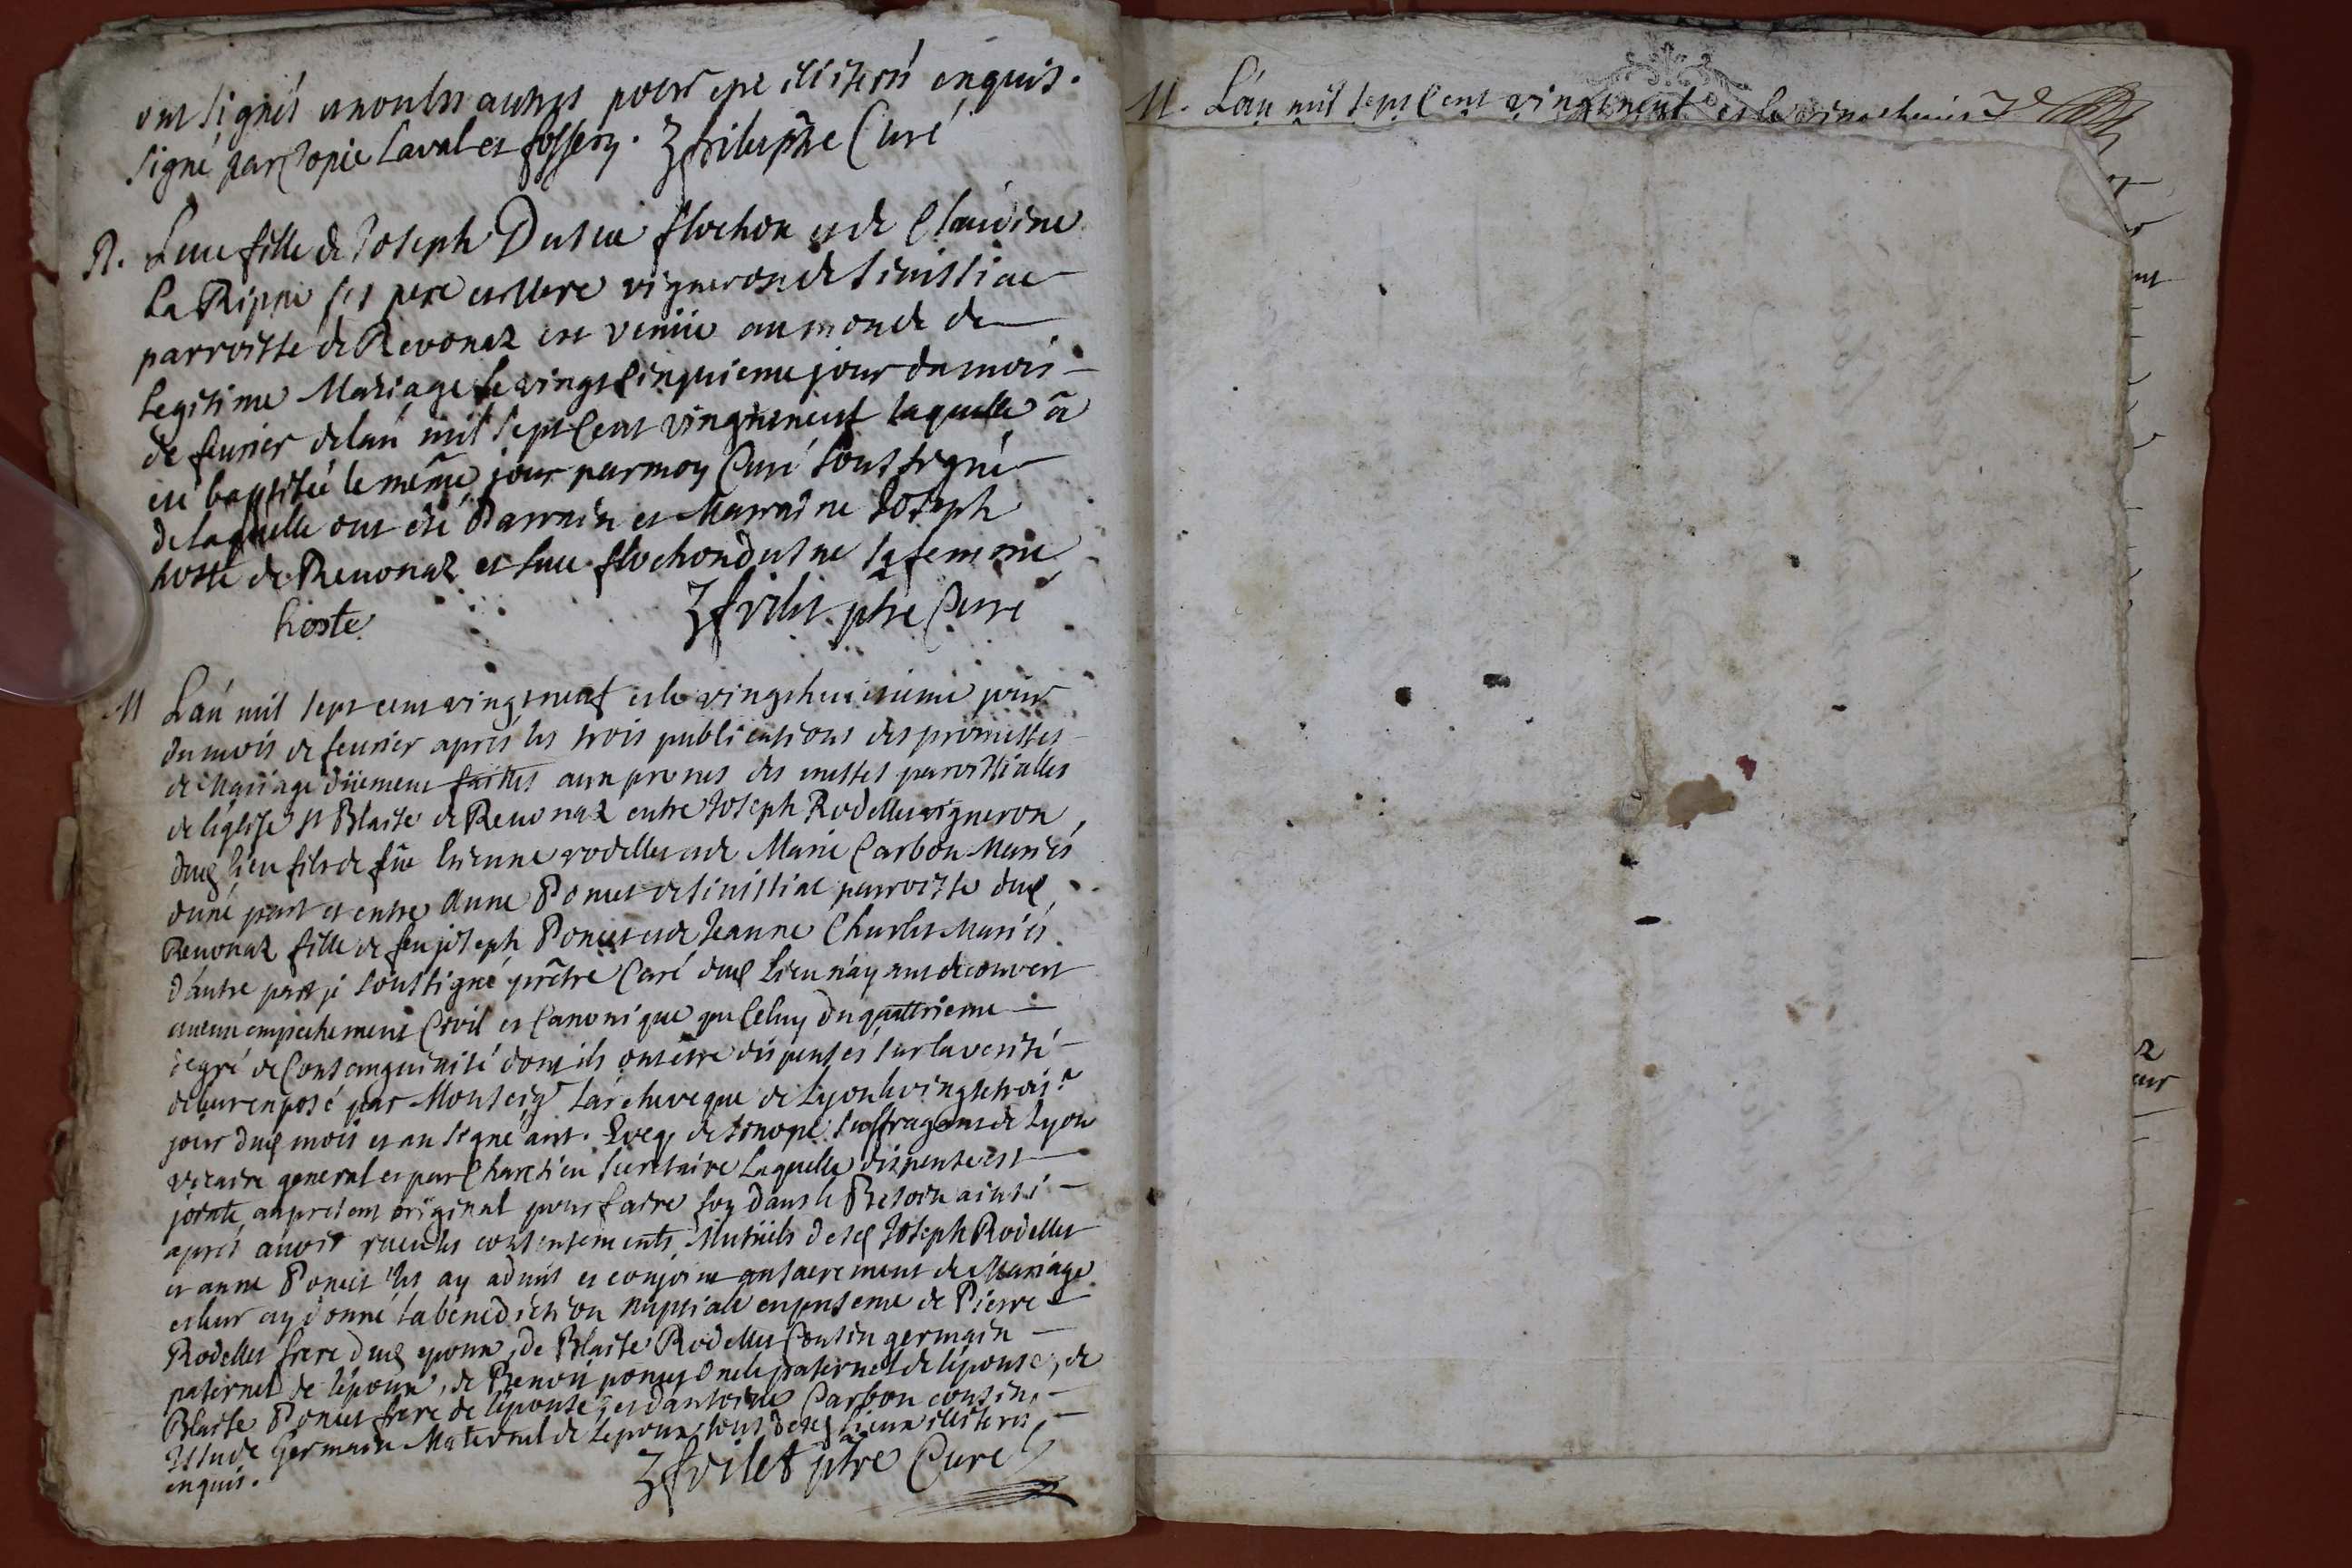 ont signés et non les autres pour etre illiterés enquis.
signé par Copie Laval et fossery. Z frilet ptre Curé
N. Luce fille de Joseph Duteu flochon et de Claudine
La Rippe ses pere et Mere vigneron de Sinissiac
parroisse de Revonaz est venüe au monde de
Legitime Mariage le vingt Cinquieme jour du mois
de feurier de lan mil sept Cent vingtneuf laquelle a
été baptisée le même jour par moy Curé soussigné
de laquelle ont été Parrain et Marraine Joseph
hoste de Reuonaz et luce flochon sa femme
hoste Z frilet ptre Curé
M Lan mil sept cent vingtneuf et le vingthuitieme jour
du mois de feurier apres les trois publications des promesses
de Mariage düement faittes aux prones des messes paroissialles
de léglise St Blaise de Reuonaz entre Joseph Rodellet vigneron
dud lieu fils de fû Etienne rodellet et de Marie Carbon Mariés
dune part et entre Anne Poncet de Sinissiac parroisse dud
Reuonaz fille de feu joseph Poncet et de Jeanne Charlet Mariés
dautre part je soussigné prêtre Curé dud Lieu n'ayant decouvert
aucun empechement Civil et Canonique que Celuy du quattrieme
degré de Consanguinité dont ils ont été dispensés sur la verité
de leur exposé par Monseigr Larcheveque de Lyon le vingt trois.e
jour dud mois et an signé ant. Eveq de Sinope suffragant de Lyon
vicaire general et par Chretien secretaire Laquelle dispense est
jointe au present original pour faire foy dans le Besoin ainsi
apres auoir receu les consentements Mutüels desd Joseph Rodellet
et anne Poncet les ay admis et conjoint au sacrement de Mariage
et leur ay donné la bénediction nuptiale en presence de Pierre
Rodellet frere dud epoux, de Blaise Rodellet Cousin germain
paternel de lépoux, de Benoit poncet Oncle paternel de lépouse, de
Blaise Poncet frere de lépouse, et dantoine Carbon cousin
Issu de Germain Maternel de Lepoux, tous desd Lieux illiterés
enquis. Z frilet ptre Curé
M. Lan mil sept Cent vingtneuf et le